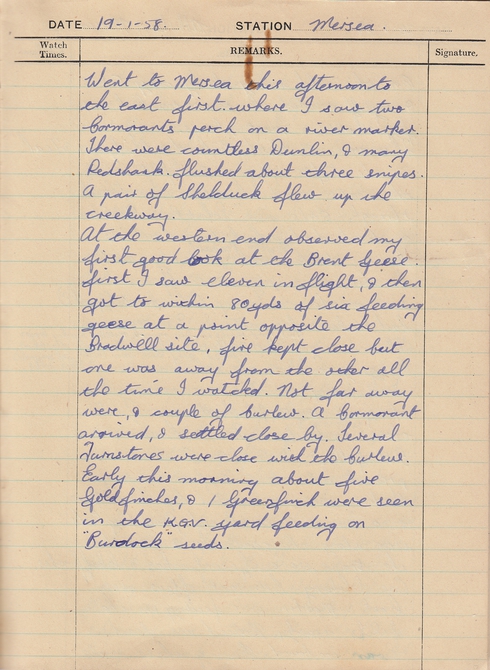 DATE 19-1-58. STATION Mersea.
Watch Times. REMARKS. Signature.
Went to Mersea this afternoon to
the east first. where I saw two
Cormorants perch on a river marker.
There were countless Dunlin, & many
Redshank. flushed about three snipes.
A pair of Shelduck flew up the
creekway.
At the western end observed my
first good look at the Brent Geese.
first I saw eleven in flight, & then
got to within 80yds of six feeding
geese at a point opposite the
Bradwell site, five kept close but
one was away from the other all
the time I watched. Not far away
were, & couple of Curlew. A Cormorant
arrived, & settled close by. Several
Turnstones were close with the Curlew.
Early this morning about five
Goldfinches, & 1 Greenfinch were seen
in the K.G.V. yard feeding on
"Burdock" seeds.